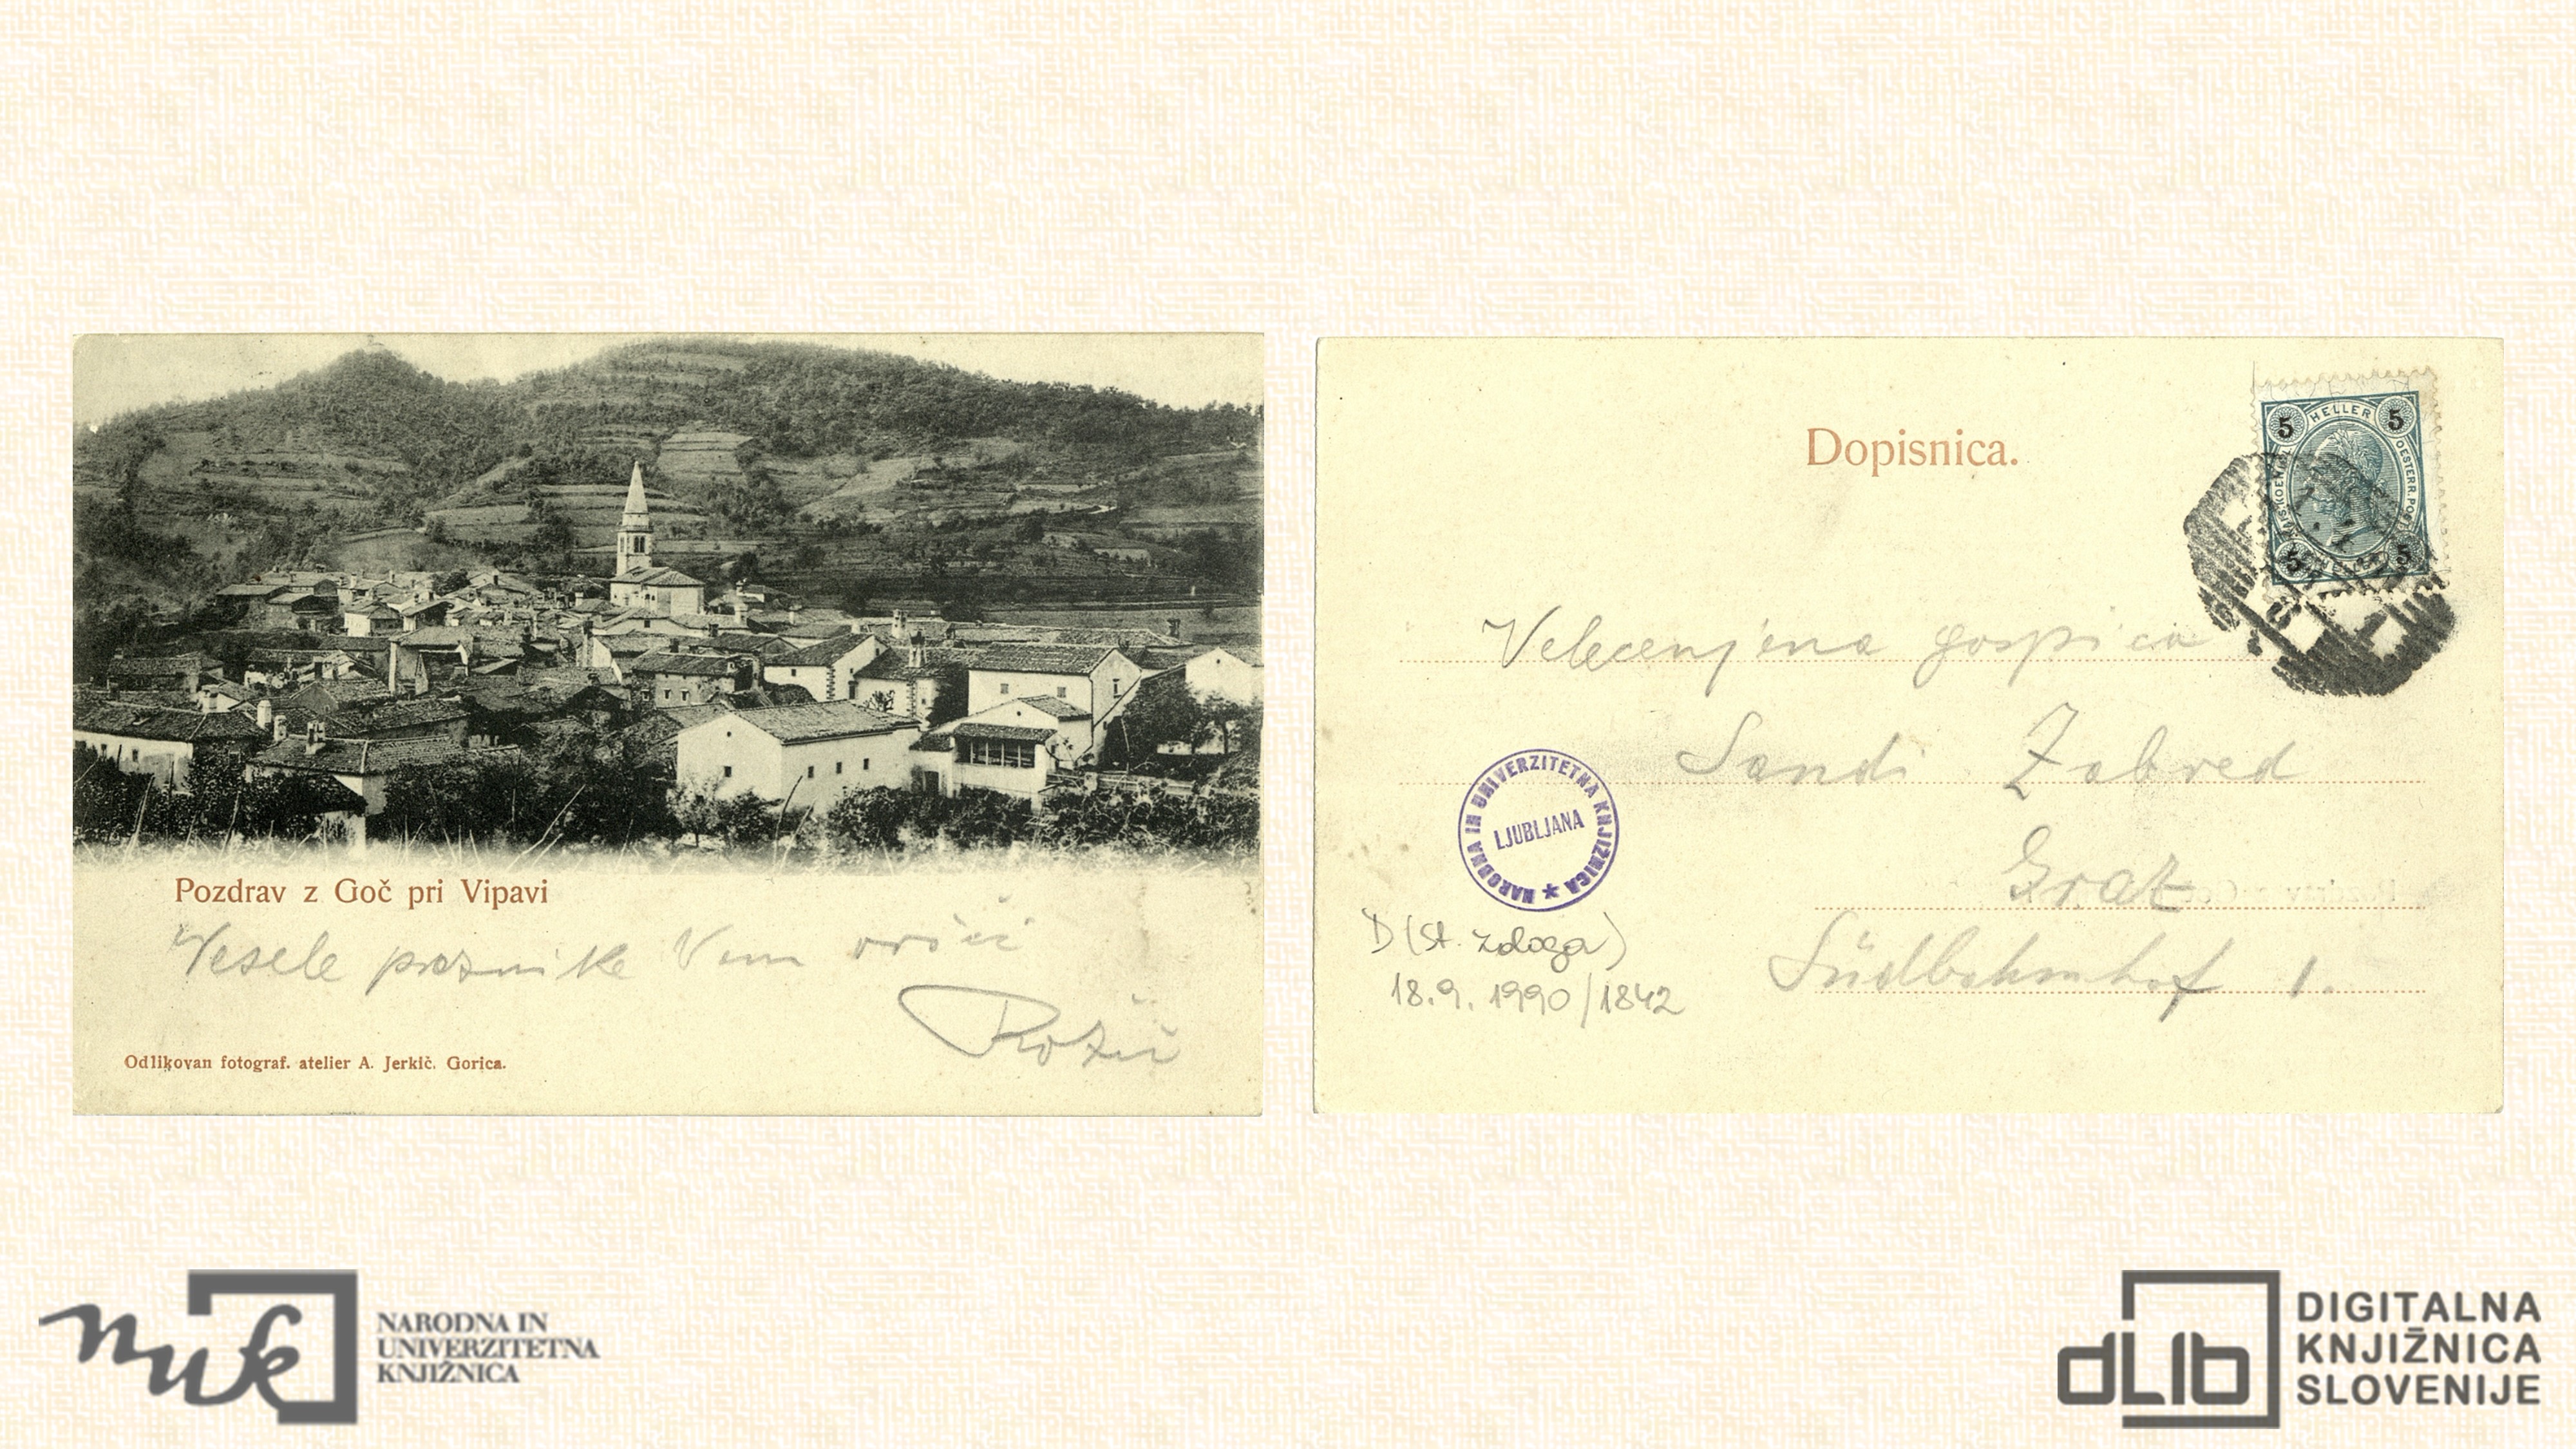 Pozdrav z Goč pri Vipavi
Vesele praznike Vam vošči
Rožič
Odlikovan fotograf. atelier A. Jerkič. Gorica.
Dopisnica.
5 HELLER 5
OESTERR. POST
5 5
Velecenjena gospica
Sandi Zabred
Graz
Südbahnhof 1.
NARODNA IN UNIVERZITETNA KNJIŽNICA ★
LJUBLJANA
D (st. zaloga)
18.9.1990/1842
nuk
NARODNA IN
UNIVERZITETNA
KNJIŽNICA
dLIb
DIGITALNA
KNJIŽNICA
SLOVENIJE